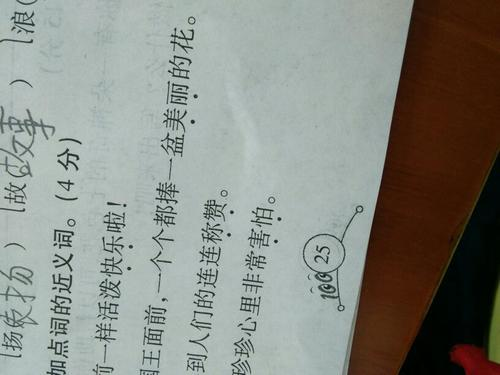 扬 扬 ) 故 故事 ) 浪(
加点词的近义词。(4分)
前一样活泼快乐啦!
国王面前,一个个都捧一盆美丽的花。
到人们的连连称赞。
珍珍心里非常害怕。
100 25